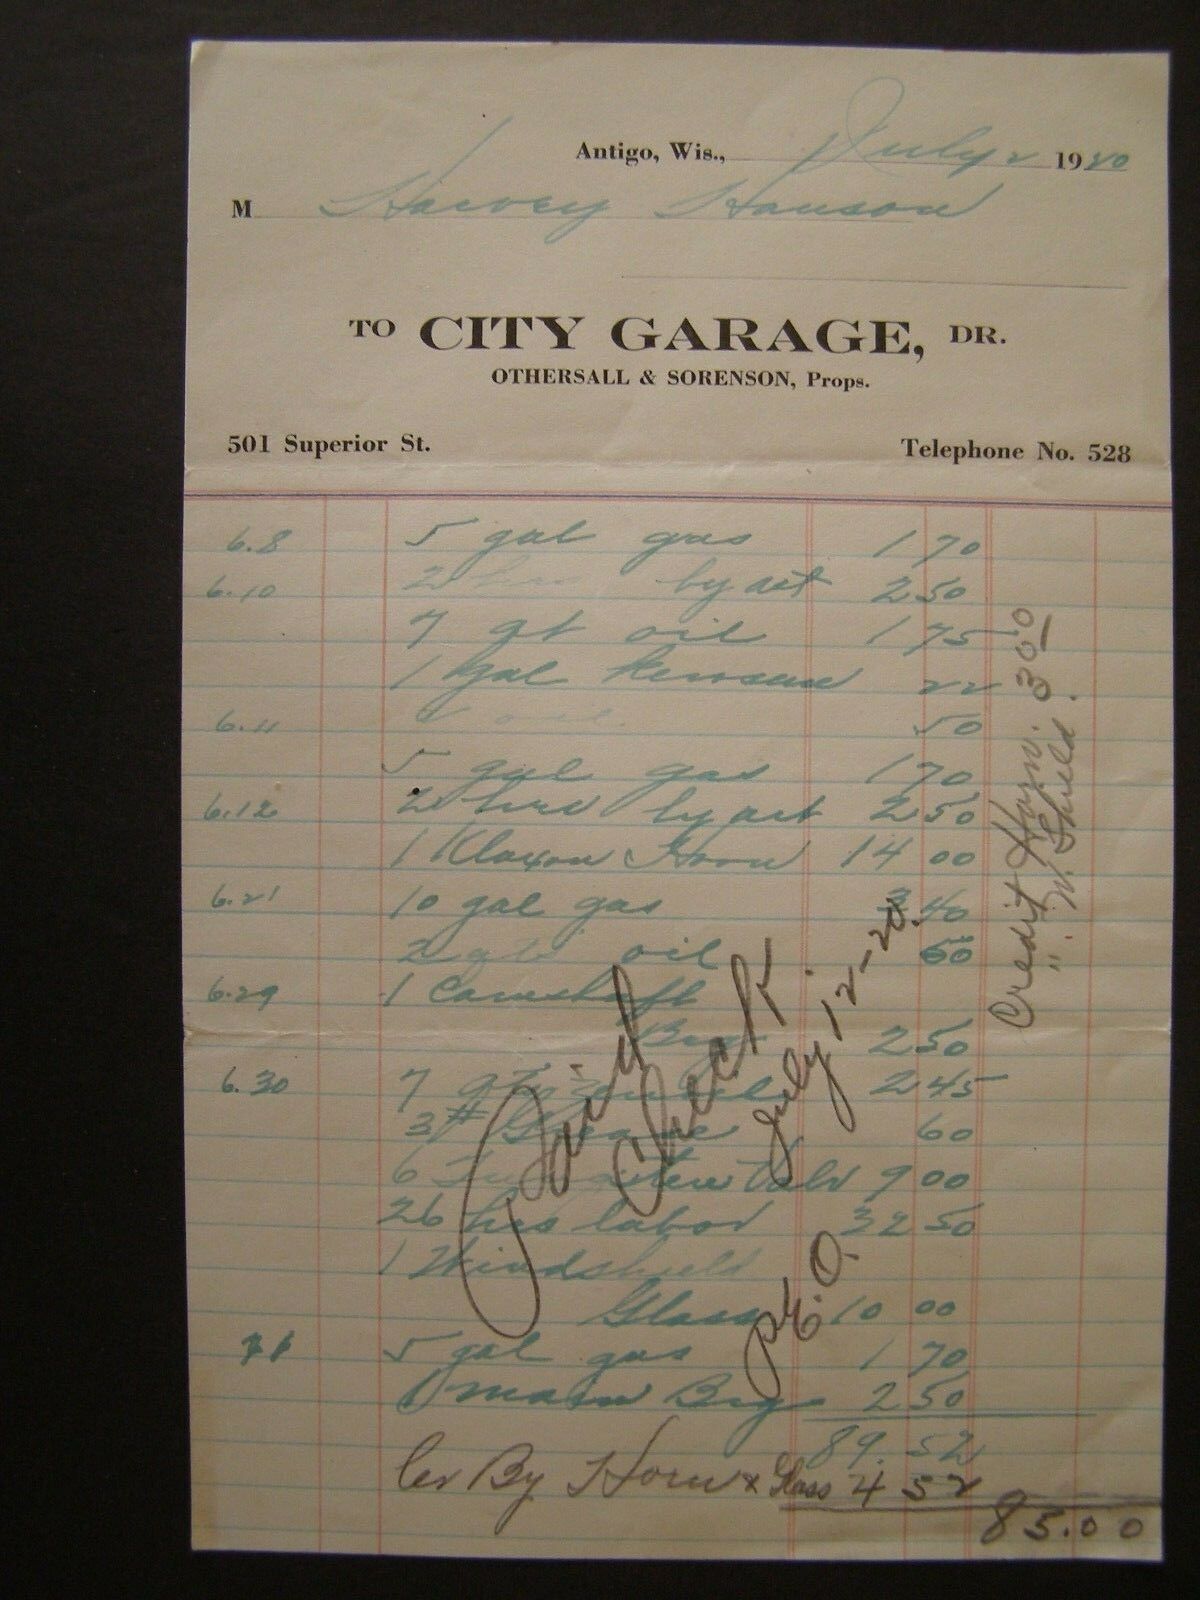 Antigo, Wis., July 2 1920
M Harvey Hanson
TO CITY GARAGE, DR.
OTHERSALL & SORENSON, Props.
501 Superior St. Telephone No. 528
6.8 5 gal gas 1 70
6.10 2 hrs by act 2 50
7 qt oil 1 75
1 gal kerosene 22
6.11 oil. 50
5 gal gas 1 70
6.12 2 hrs by act 2 50
1 Klaxon Horn 14 00
6.21 10 gal gas 3 40
2 qts oil 50
6.29 1 Camshaft
Brg 2 50
6.30 7 qts 2 45
3# Grease 60
6 9 00
26 hrs labor 32 50
1 Windshield
Glass 10 00
7 1 5 gal gas 1 70
1 main Brg 2 50
89.52
Cr By Horn & Glass 4 52
85.00
Paid
Check
July 12-20.
E.O.
Credit Horn. 3 00
" W. Shield.